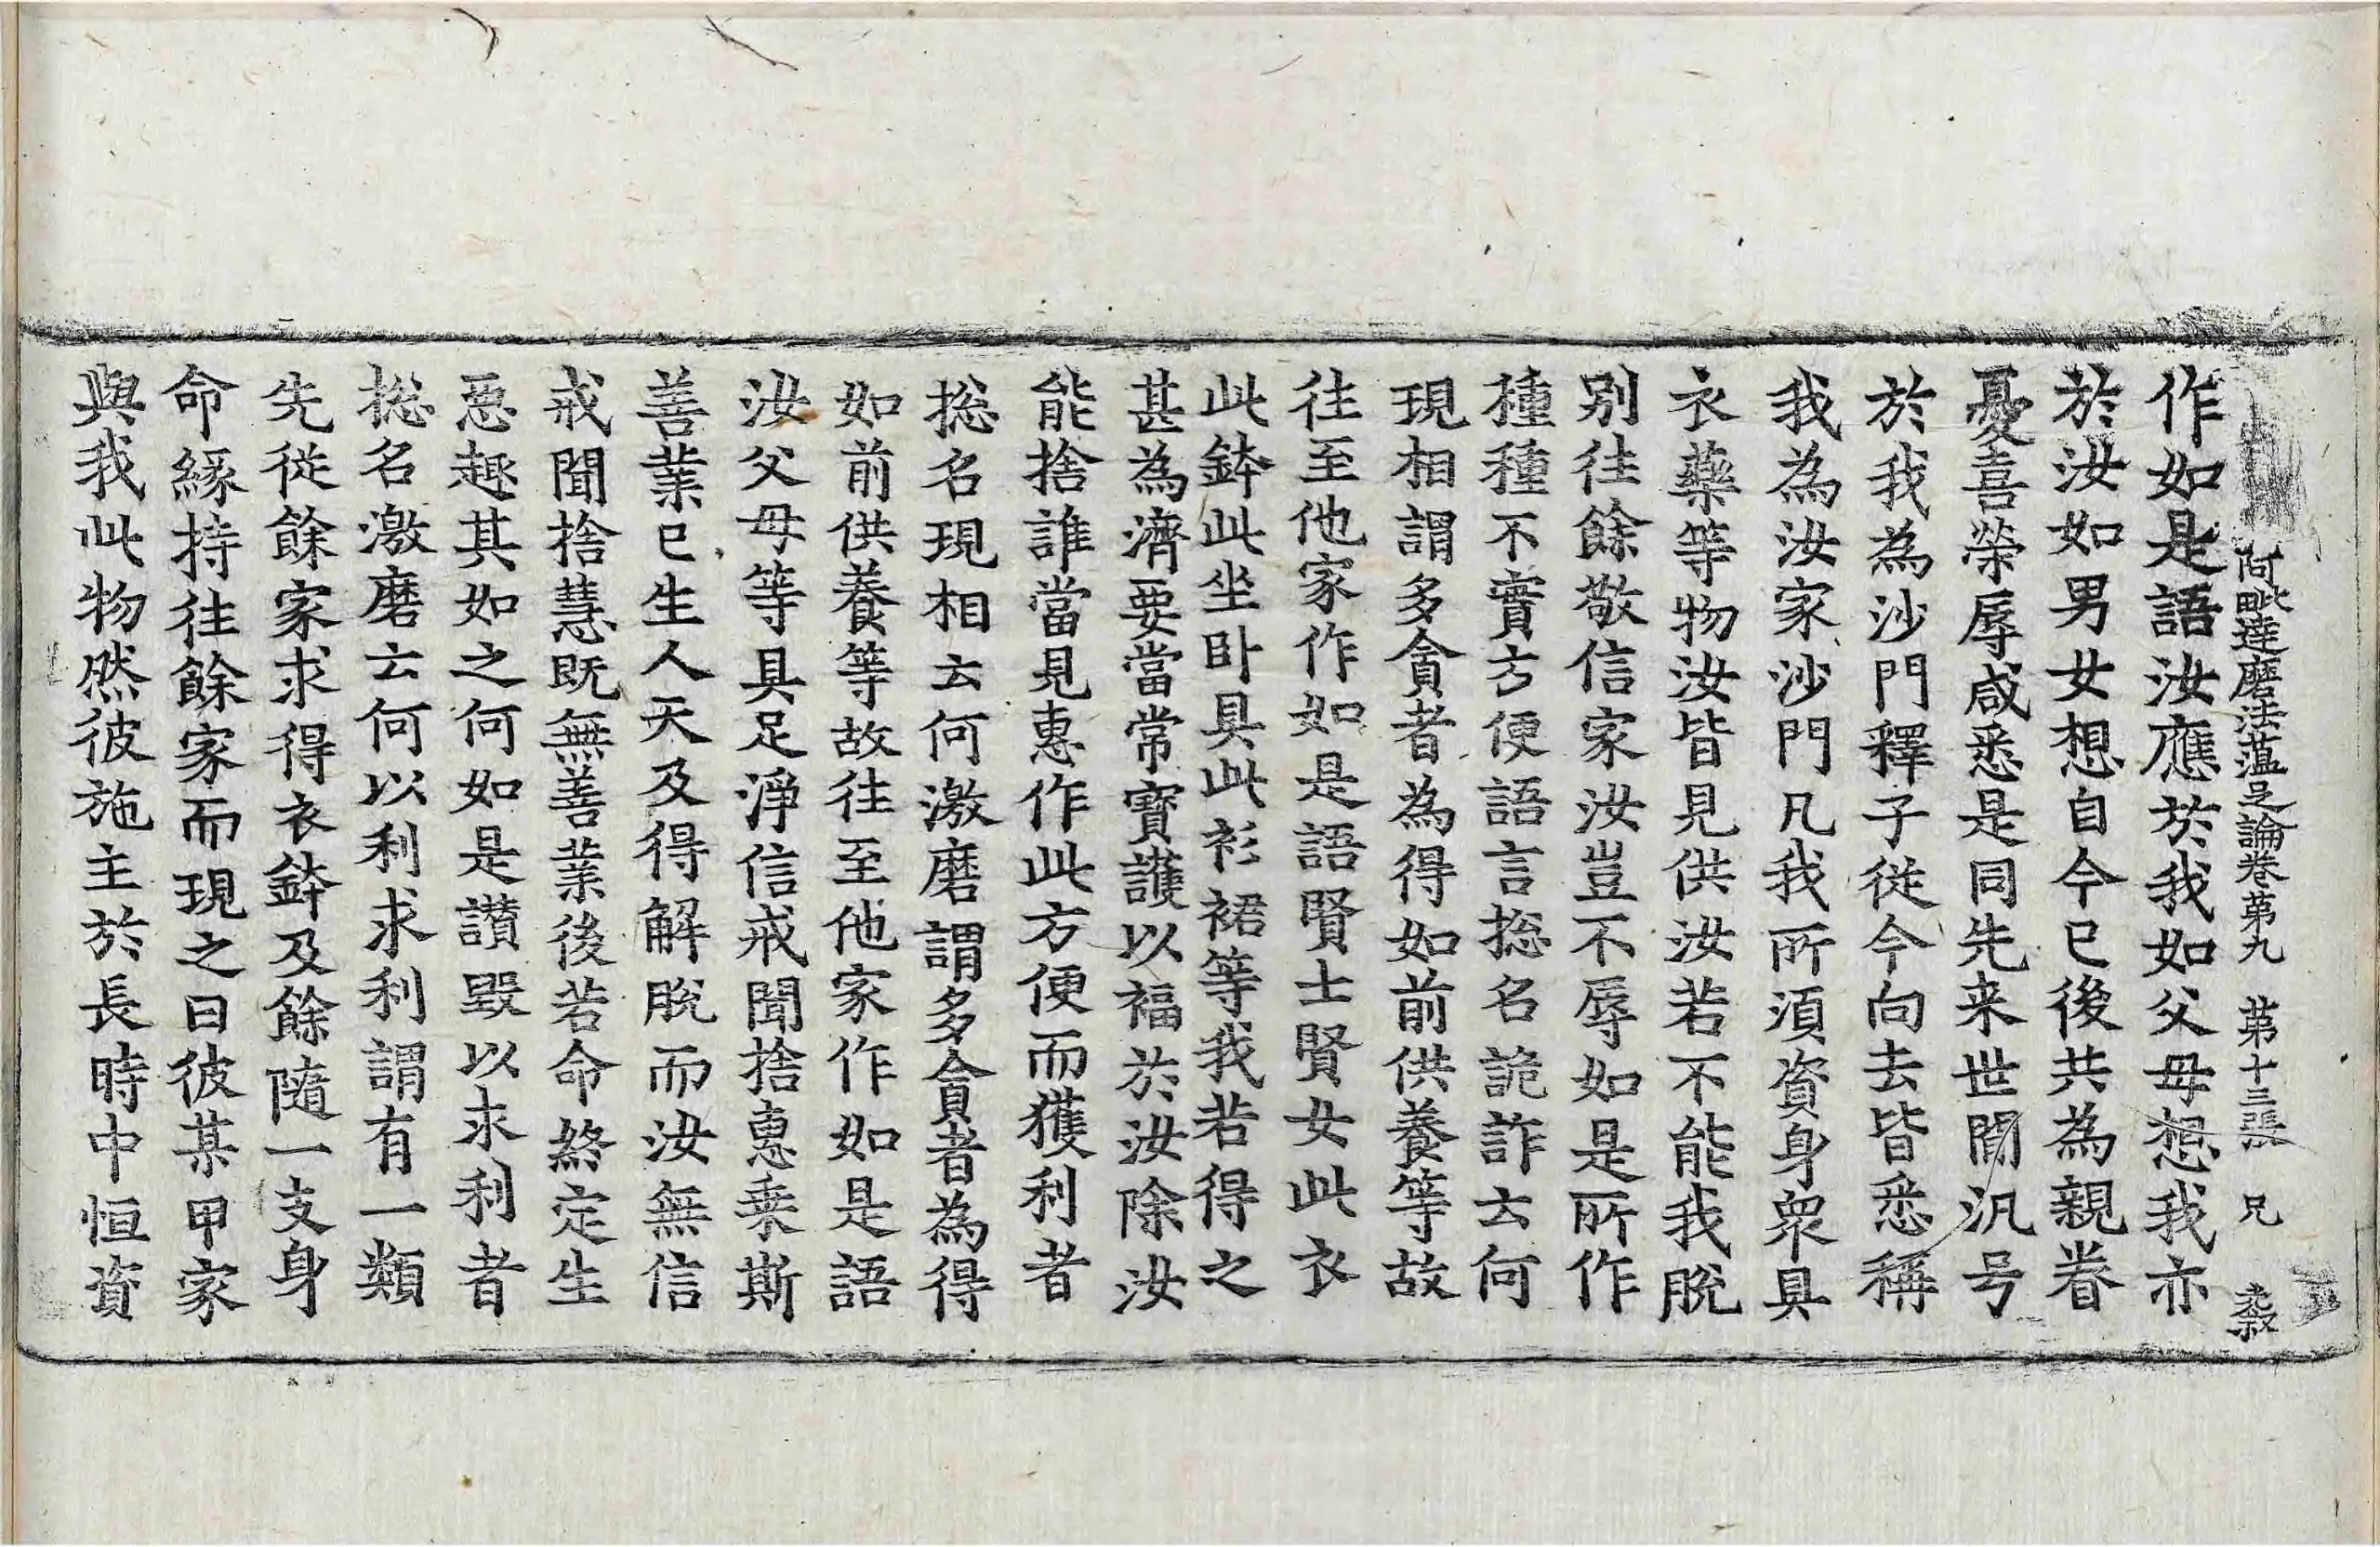 阿毗達磨法蘊足論卷第九　第十三張　兄
作如是語汝應於我如父母想我亦
於汝如男女想自今已後共為親眷
憂喜榮辱咸悉是同先来世間汎号
於我為沙門釋子從今向去皆悉稱
我為汝家沙門凡我所須資身衆具
衣藥等物汝皆見供汝若不能我脫
別往餘敬信家汝豈不辱如是所作
種種不實方便語言揔名詭詐云何
現相謂多貪者為得如前供養等故
往至他家作如是語賢士賢女此衣
此鉢此坐卧具此衫裙等我若得之
甚為濟要當常寶護以福於汝除汝
能捨誰當見惠作此方便而獲利者
揔名現相云何激磨謂多貪者為得
如前供養等故往至他家作如是語
汝父母等具足淨信戒聞捨惠乗斯
善業已生人天及得解脫而汝無信
戒聞捨慧既無善業後若命終定生
惡趣其如之何如是讃毀以求利者
揔名激磨云何以利求利謂有一類
先從餘家求得衣鉢及餘隨一支身
命緣持往餘家而現之曰彼某甲家
與我此物然彼施主於長時中恒資